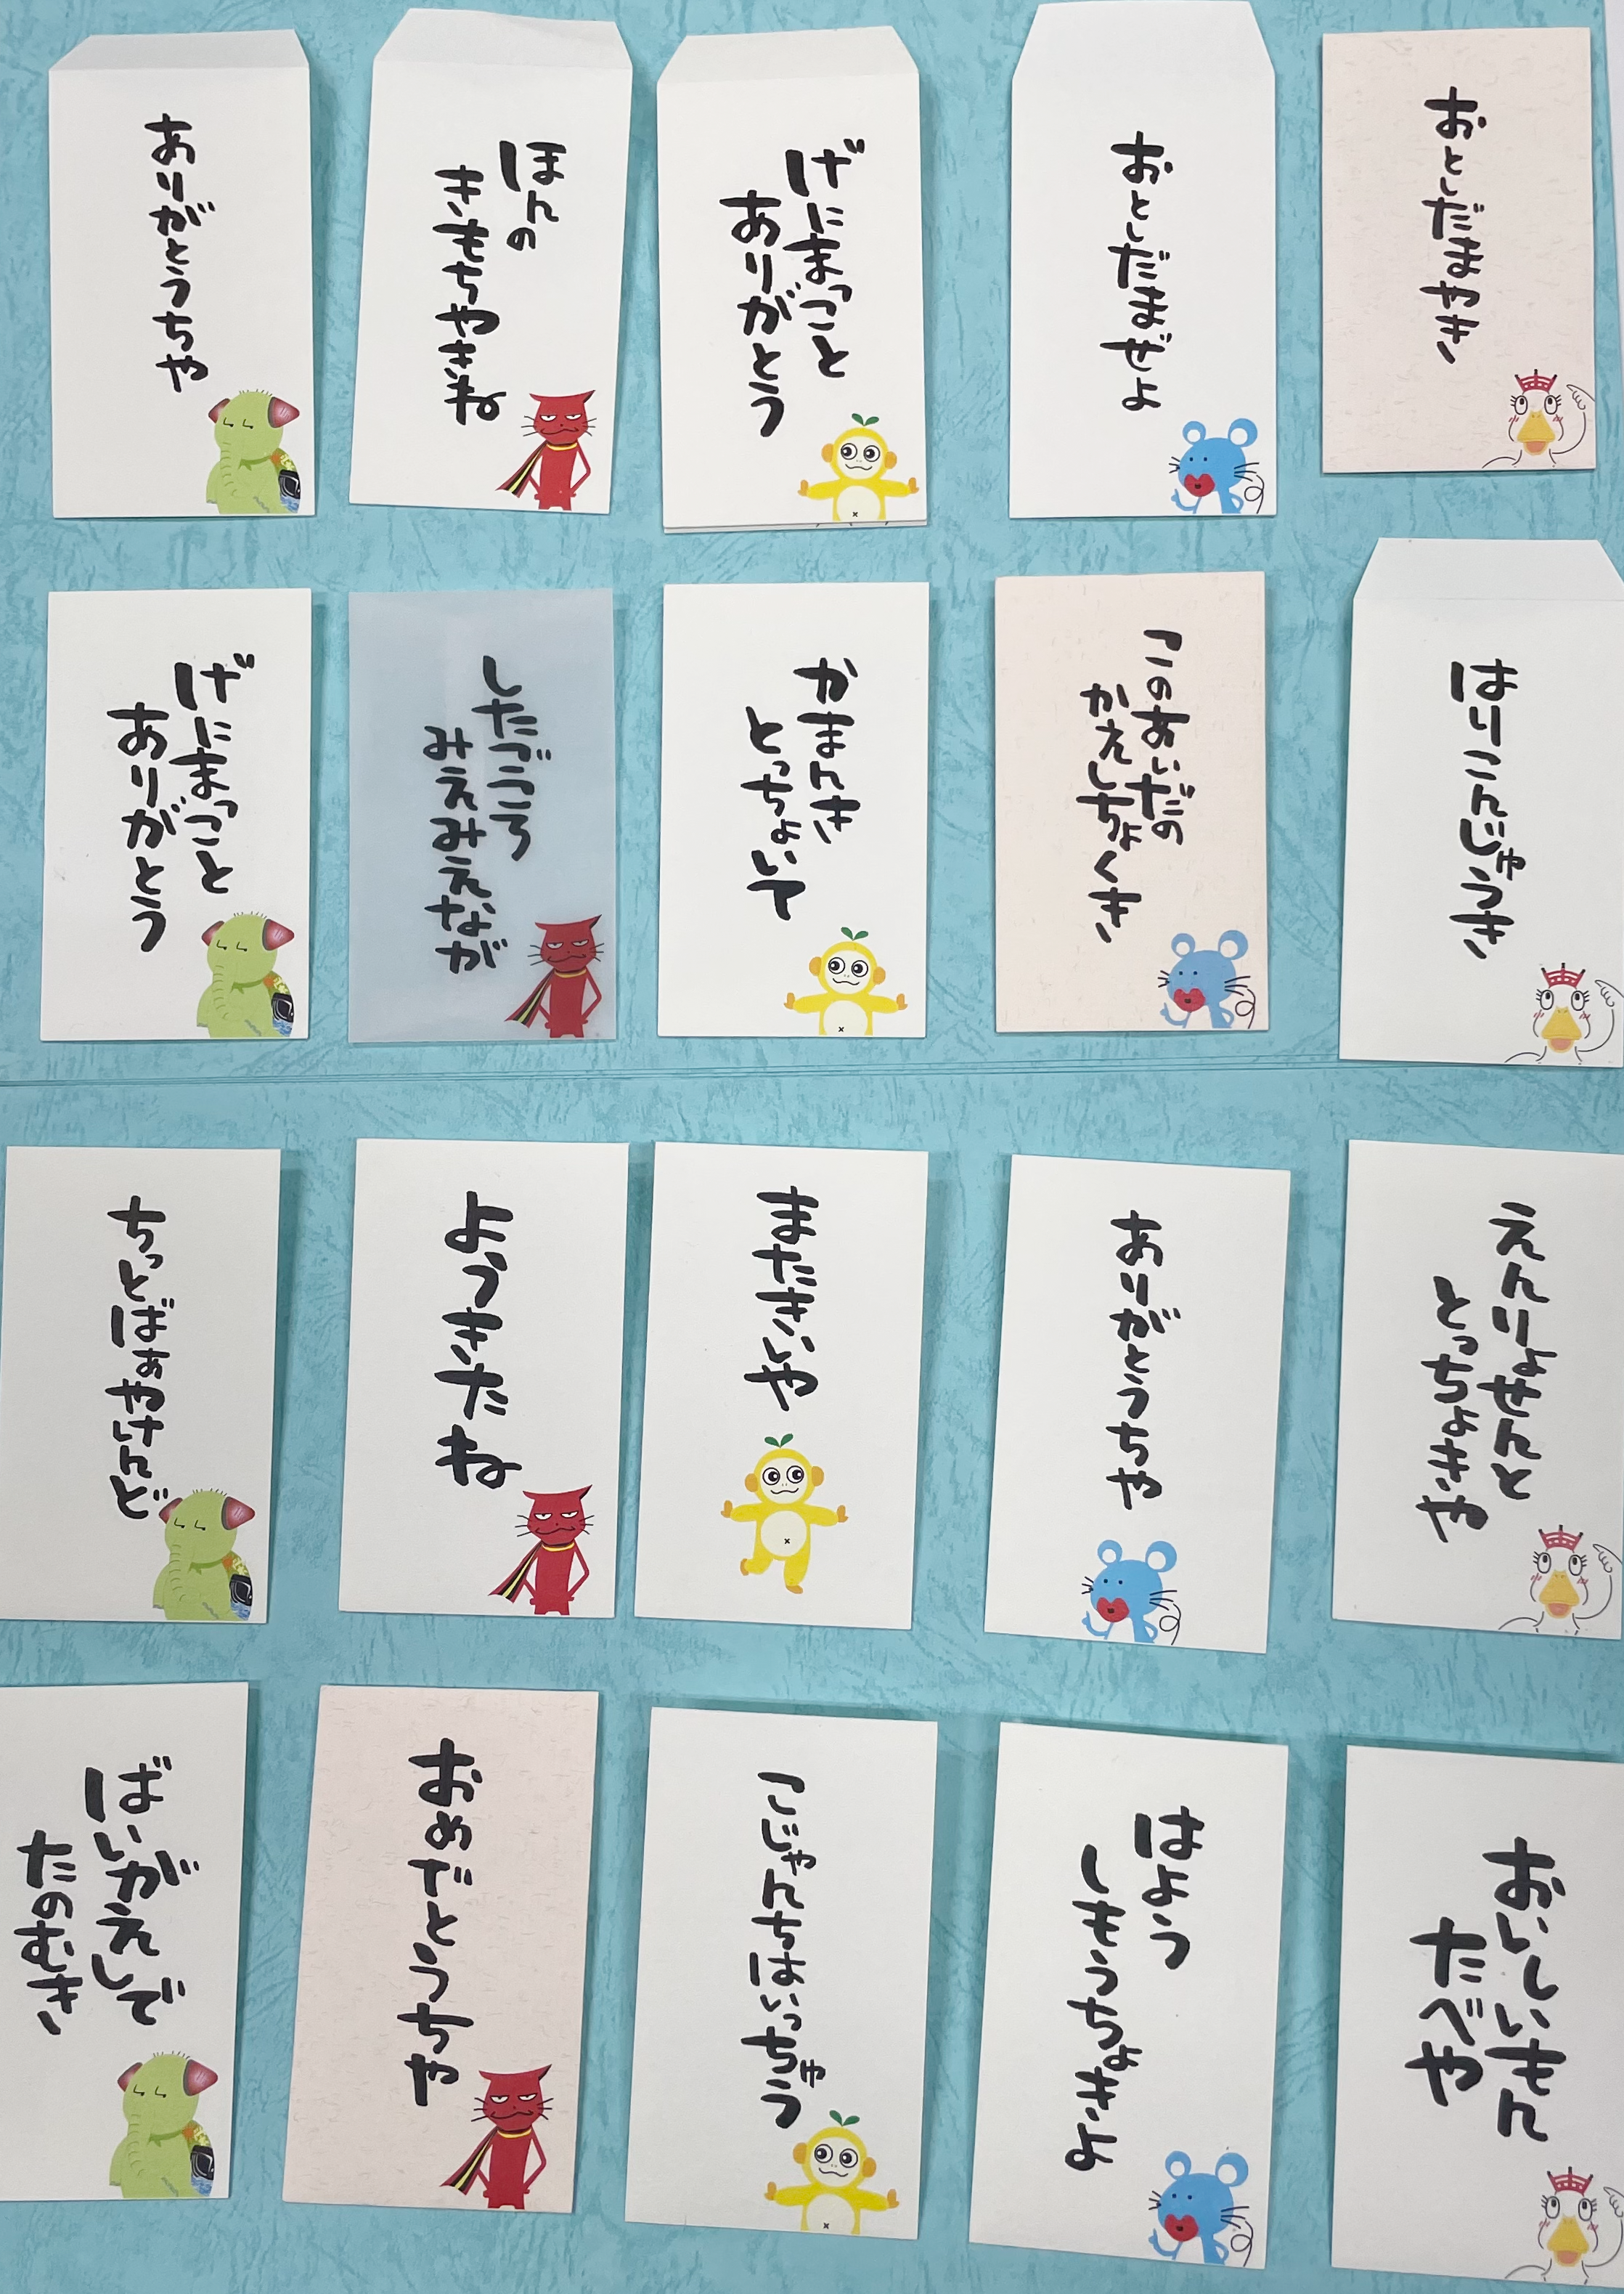 ありがとうちや
ほんの
きもちやきね
げにまっこと
ありがとう
おとしだまぜよ
おとしだまやき
げにまっこと
ありがとう
したごころ
みえみえなが
かまんき
とっちょいて
このあいだの
かえしちょくき
はりこんじゅうき
ちっとばぁやけんど
よううきたね
またきいや
ありがとうちや
えんりょせんと
とっちょきや
ばいがえしで
たのむき
おめでとうちや
こじゃんちはいっちゅう
はよう
しもうちょきよ
おいしいもん
たべや